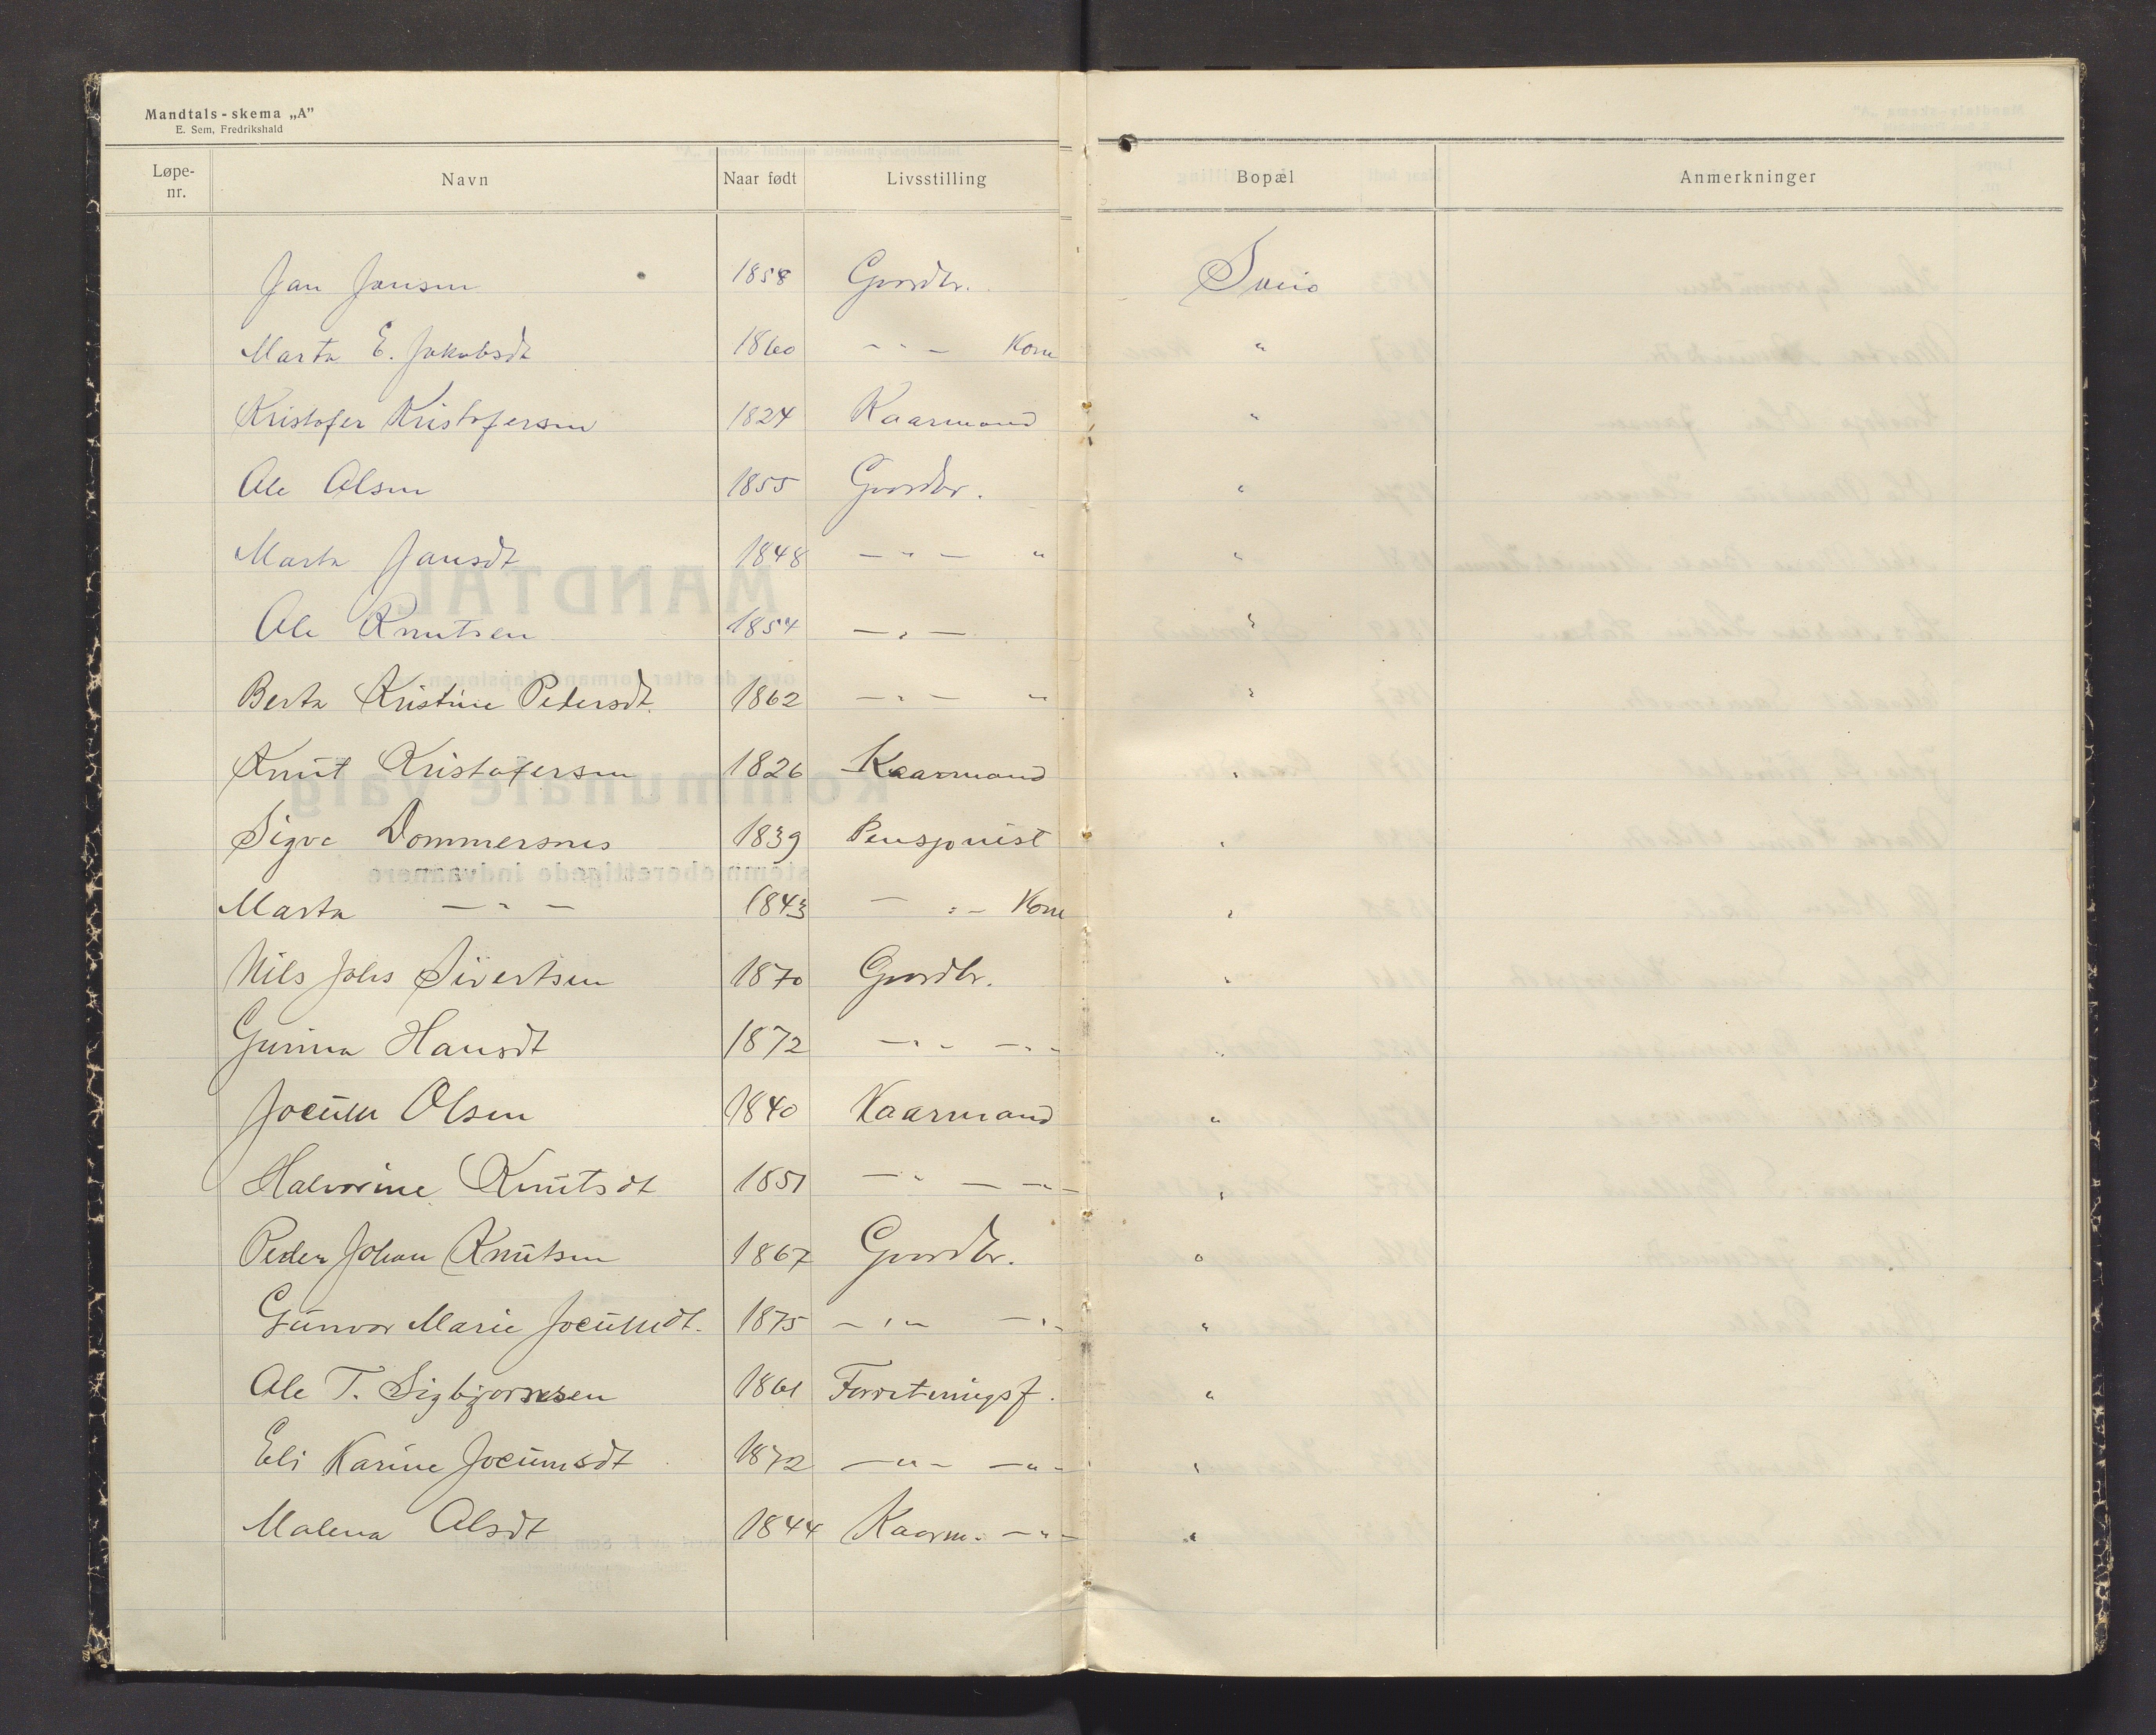 Mandtals-skema „A”
E. Sem, Fredrikshald
Løpe-nr. Navn Naar født Livsstilling Bopæl Anmerkninger
Jan Jansen 1858 Gaardbr. Sveio
Marta E. Jakobsdt 1860 - " - Kone "
Kristofer Kristofersen 1824 Kaarmand "
Ole Olsen 1855 Gaardbr. "
Marta Jansdt 1848 - " - " "
Ole Knutsen 1854 - " - "
Berta Kristine Pedersdt. 1862 - " - " "
Knut Kristofersen 1826 Kaarmand "
Sigve Dommersnes 1839 Pensjonist "
Marta - " - 1843 - " - Kone "
Nils Johs Sivertsen 1870 Gaardbr. "
Gurina Hansdt 1872 - " - - " - "
Jocum Olsen 1840 Kaarmand "
Halvorine Knutsdt 1851 - " - - " - "
Peder Johan Knutsen 1867 Gaardbr. "
Gunvor Marie Jocumsdt. 1875 - " - - " - "
Ole T. Sigbjørnsen 1861 Forretningsf. "
Eli Karine Jocumsdt 1872 - " - - " - "
Malena Olsdt 1844 Kaarm. - " - "